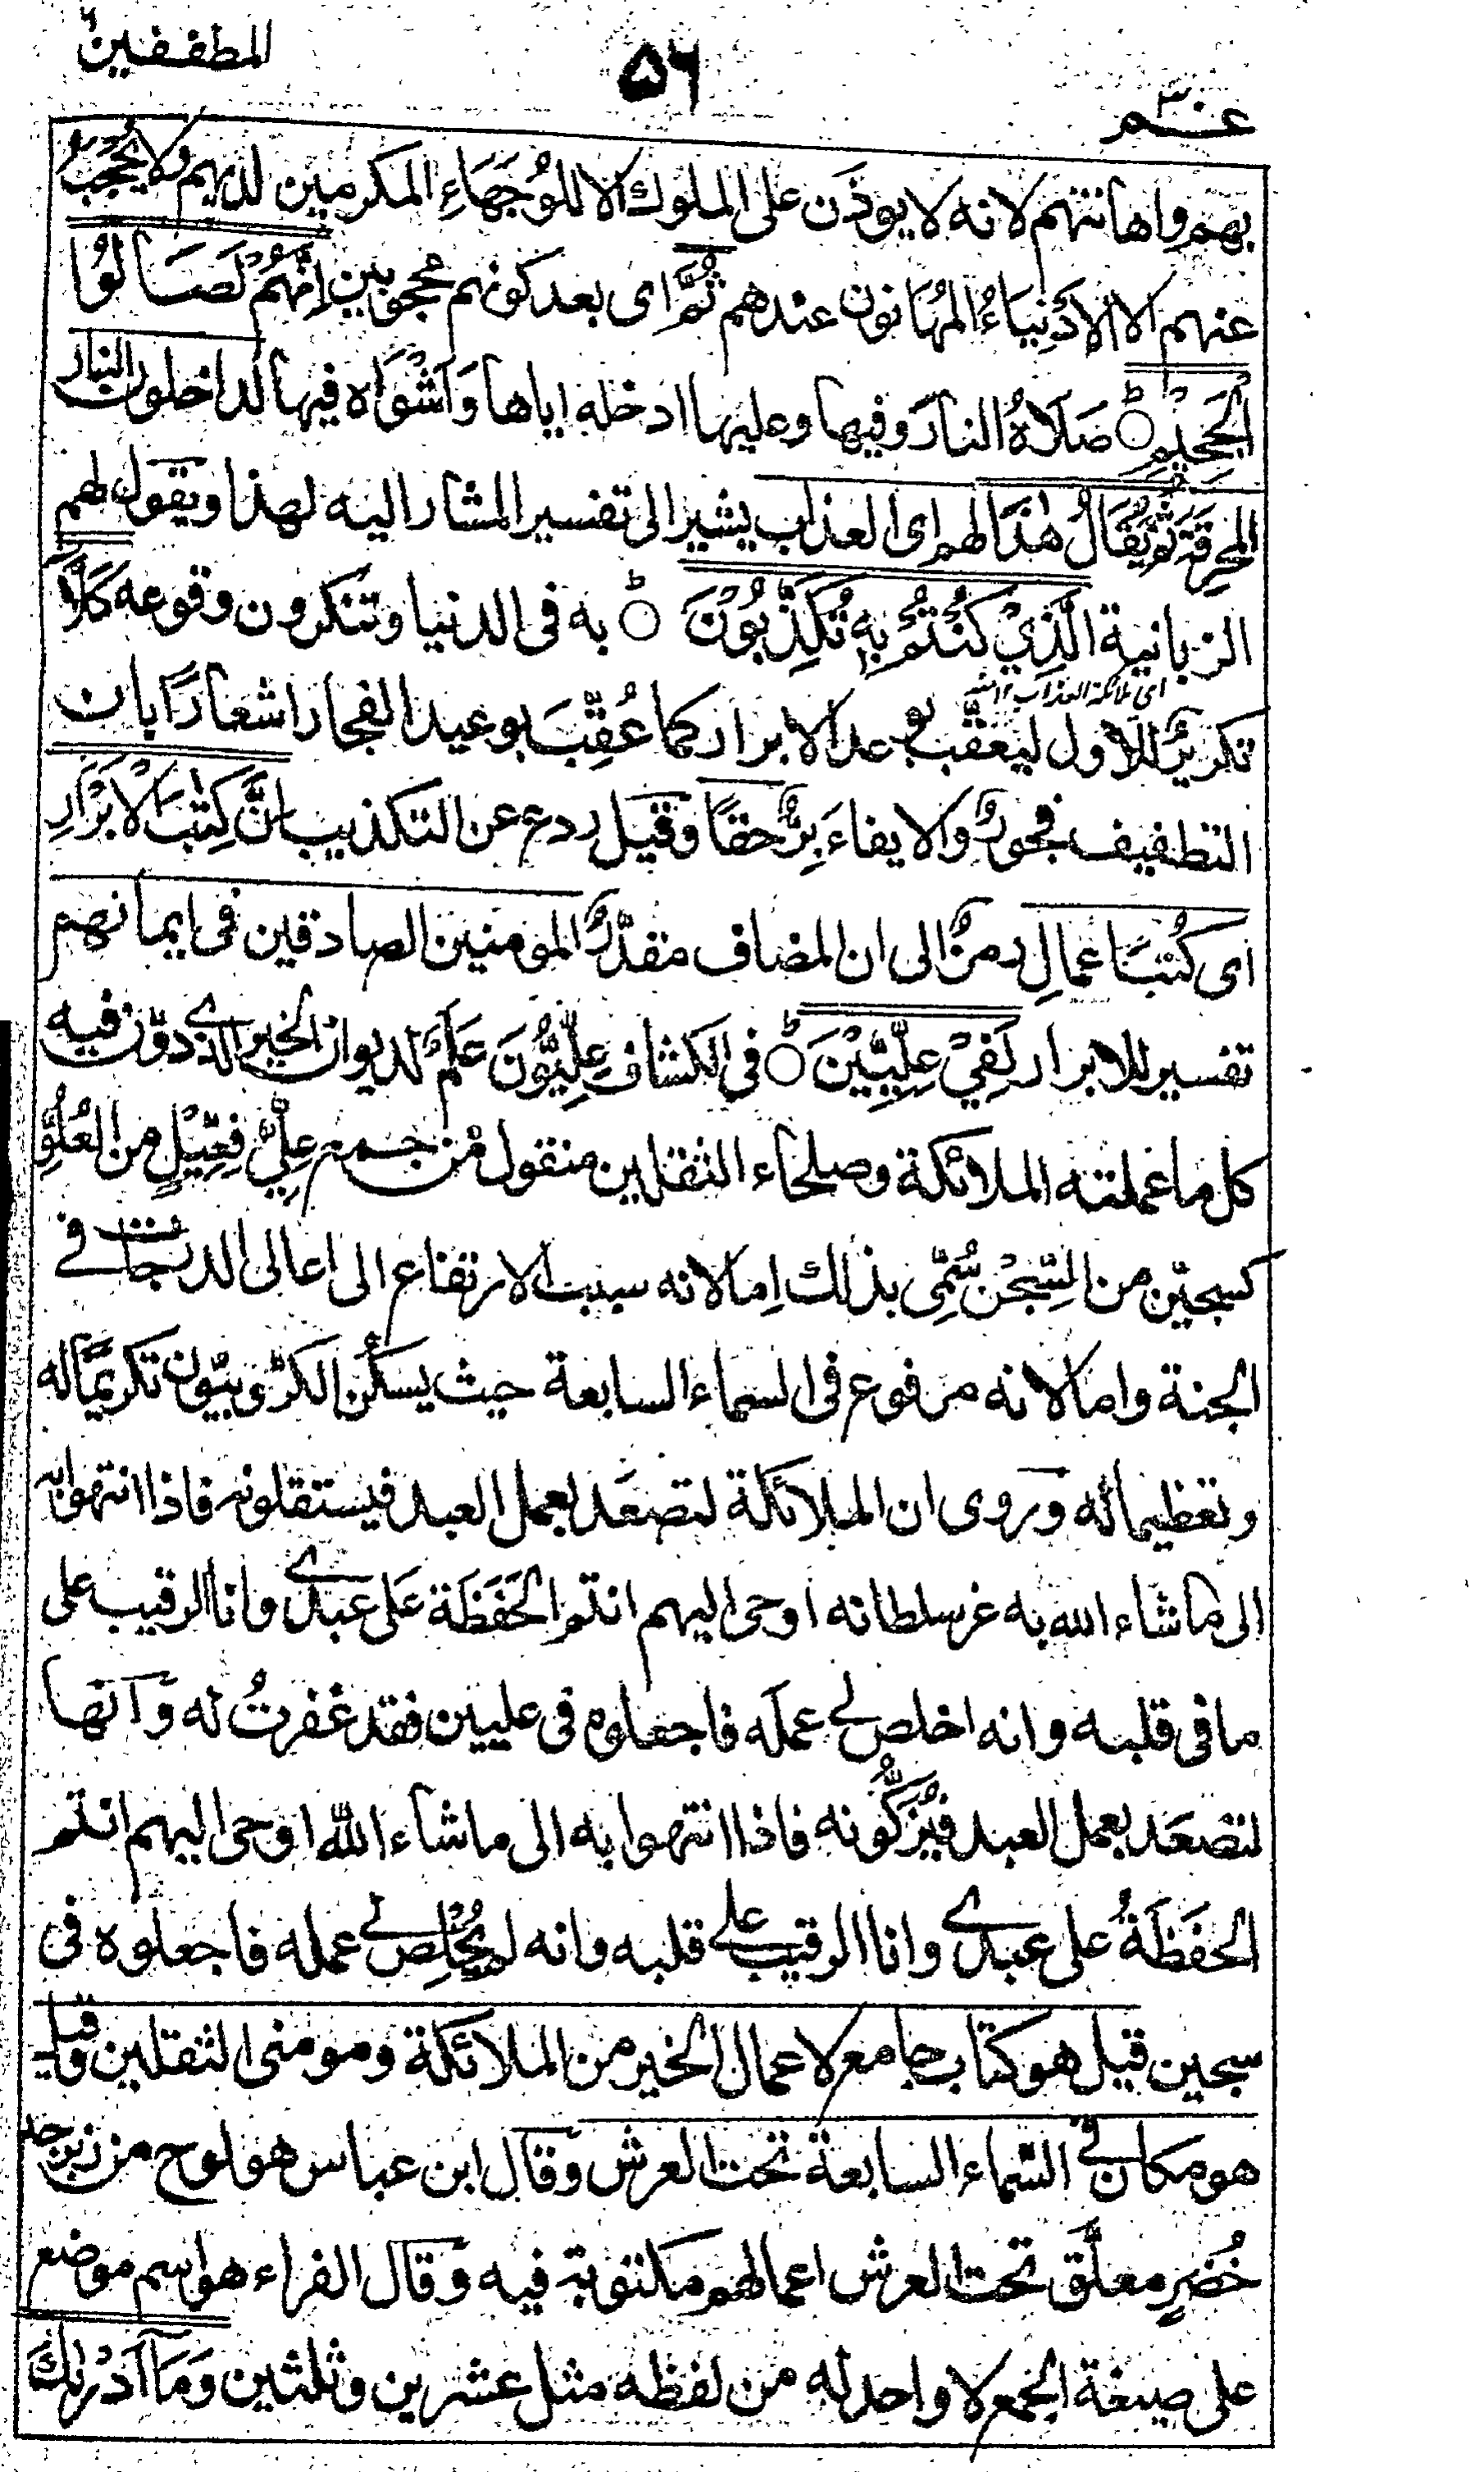 المطففين
۵۶
عـــم ۳۰
بهم واهانتهم لانه لا يوذن على الملوك الا للوُجَهَاءِ المكرمين لديهم ولا يُحْجَبُ
عنهم الا الاَدْنِيَاءُ المُهَانون عندهم ثُمَّ اى بعد كونهم محجوبين اِنَّهُمْ لَصَالُوا
الْجَحِيْمِ ۝ؕ صَلَاهُ النارَ وفيها وعليها ادخله اياها وَاَشْوَاه فيها لداخلون النار
المحرقة ثُمَّ يُقَالُ هٰذَا لهم اى العذاب يشير الى تفسير المشار اليه لهذا ويقول لهم
الزبانية الَّذِيْ كُنْتُمْ بِهٖ تُكَذِّبُوْنَ ۝ؕ به فى الدنيا وتنكرون وقوعه كَلَّآ
اى ملائكة العذاب ۱۲ منه
تكريرٌ للاول ليعقّب بوعد الابرار كما عُقِّبَ بوعيد الفجار اشعارًا بان
التطفيف فجورٌ والايفاءَ بِرٌّ حقًا وقيل ردع عن التكذيب اِنَّ كِتٰبَ الْاَبْرَارِ
اى كُتُبَ اعمالِ رمزٌ الى ان المضاف مقدّرٌ المومنين الصادقين فى ايمانهم
تفسير للابرار لَفِيْ عِلِّيِّيْنَ ۝ؕ فى الكشاف عِلِّيُّوْنَ عَلَمٌ لديوان الخير الذى دوّن فيه
كل ما عملته الملائكة وصلحاء الثقلين منقول من جمع عِلِّيٍّ فِعِّيْلٍ من العُلُوِّ
كسجين من السِّجْنِ سُمِّى بذلك اِما لانه سبب الارتفاع الى اعالى الدرجات فى
الجنة واما لانه مرفوع فى السماء السابعة حيث يسكن الكَرُّوبيّون تكريمًا له
وتعظيما له وروى ان الملائكة لتصعَد بعمل العبد فيستقلونه فاذا انتهوا به
الى ما شاء الله به من سلطانه اوحى اليهم انتم الحَفَظَة عَلى عبدى وانا الرقيب على
ما فى قلبه وانه اخلص لى عملَه فاجعلوه فى عليين فقد غفرتُ له وَانها
لتصعَد بعمل العبد فيُزَكُّونه فاذا انتهوا به الى ما شاء اللّٰه اوحى اليهم انتم
الحفَظَةُ على عبدى وانا الرقيب على قلبه وانه لم يُخْلِص لى عمله فاجعلوه فى
سجين قيل هو كتاب جامع لاعمال الخير من الملائكة ومومنى الثقلين وقيل
هو مكان فى السّماء السابعة تحت العرش وقال ابن عباس هو لوح من زبرجد
خُضْرٍ معلَّق تحت العرش اعمالهم مكتوبة فيه وقال الفراء هو اسم موضع
على صيغة الجمع لا واحد له من لفظه مثل عشرين وثلثين وَمَآ اَدْرٰىكَ